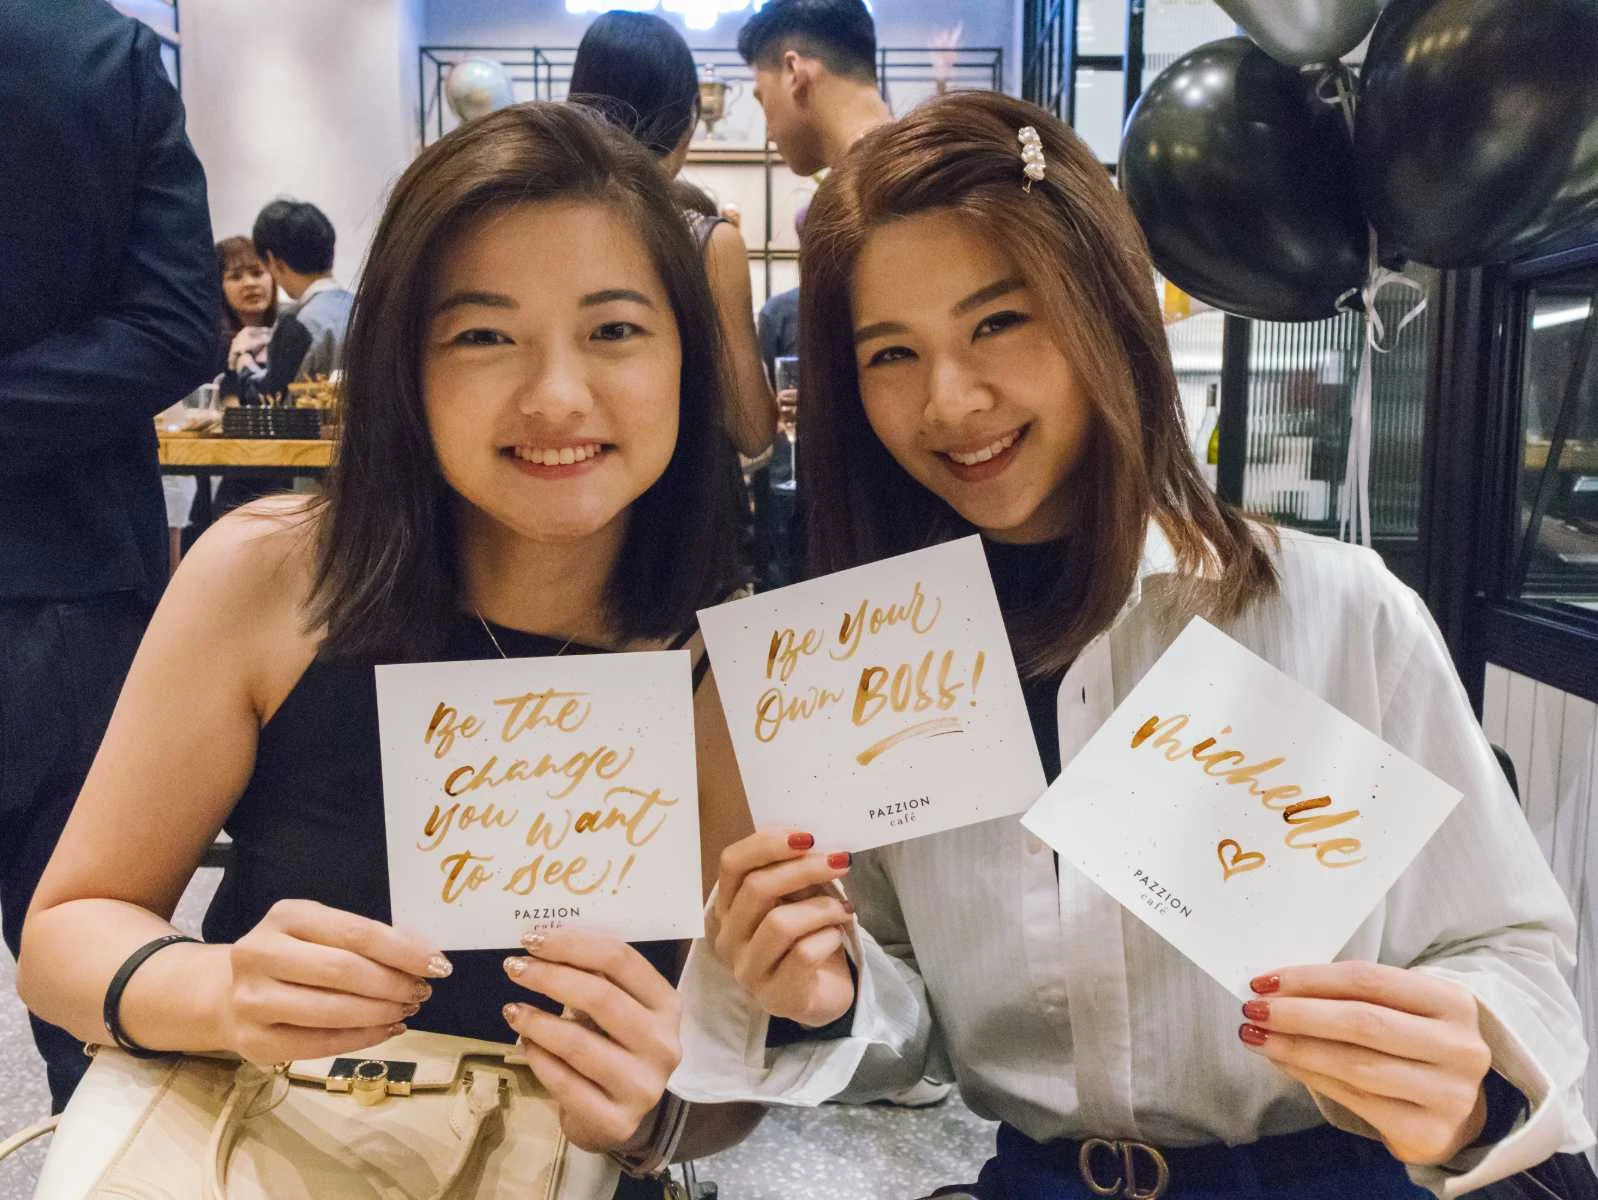 Be the
change
you want
to see!
PAZZION
café
Be Your
Own BOSS!
PAZZION
café
Michelle
PAZZION
café
CD